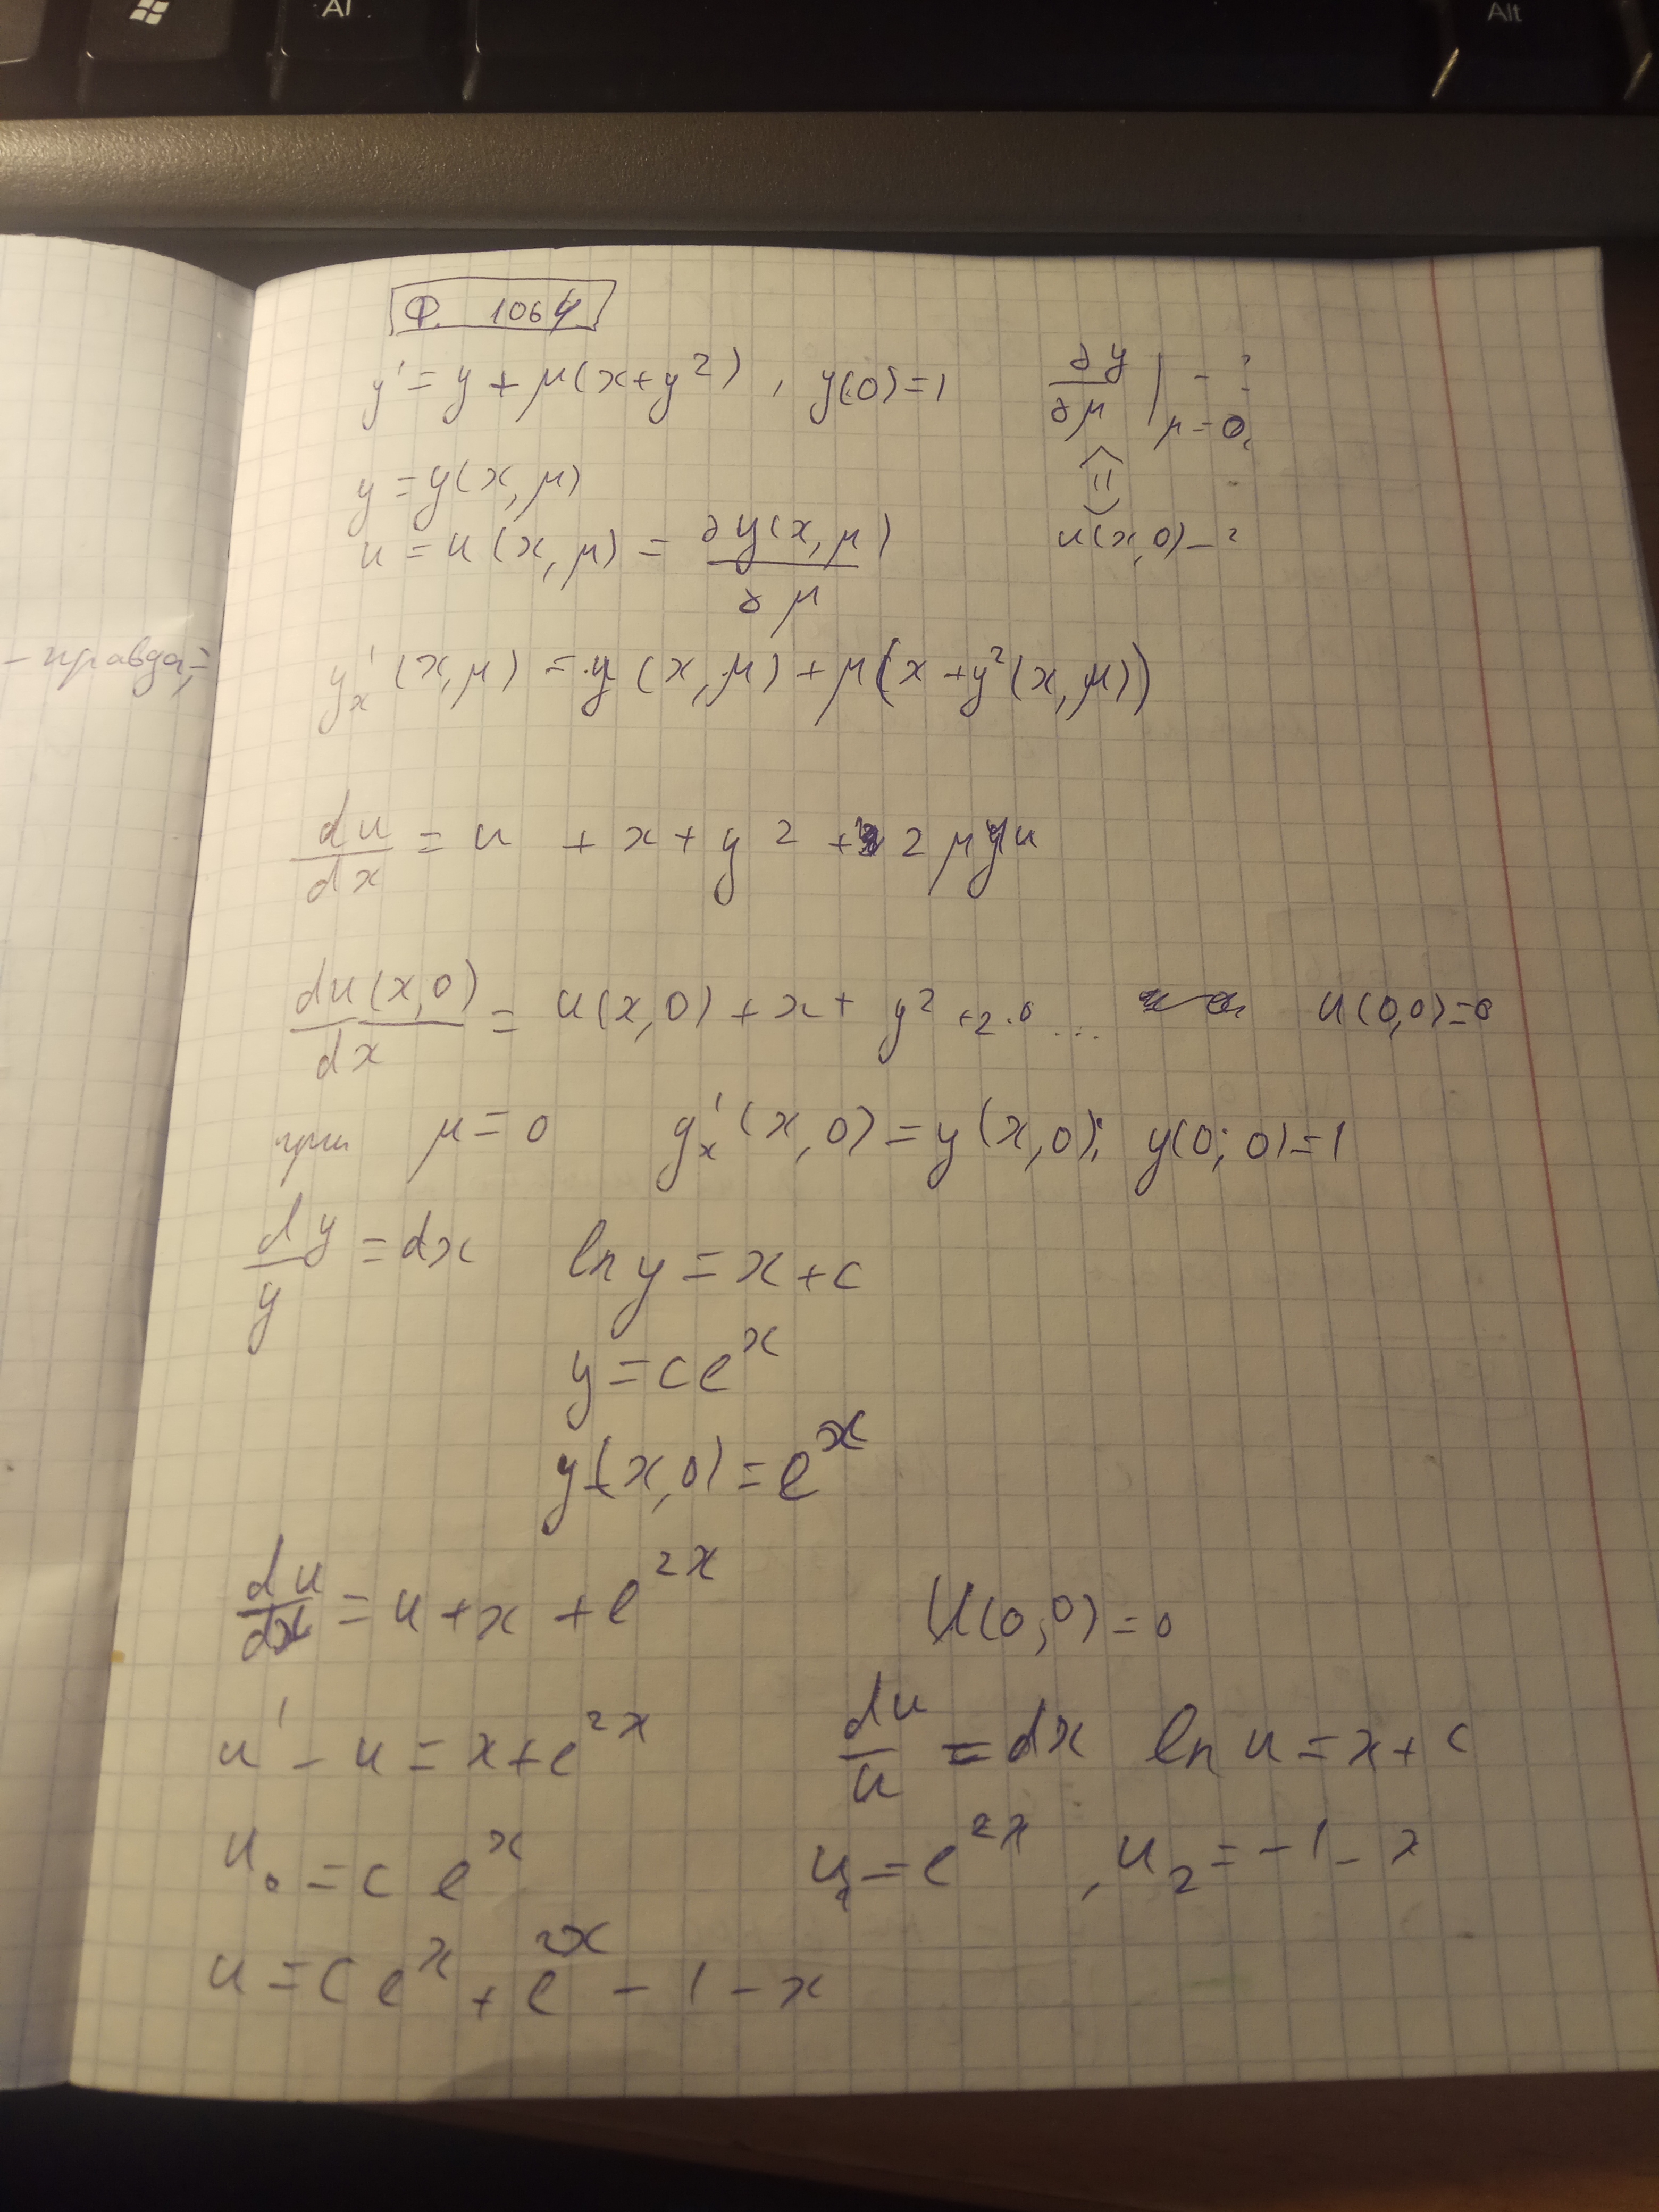 Alt
Alt
Ф. 1064
y' = y + μ(x+y²), y(0)=1 ∂y/∂μ |μ=0 - ?
y = y(x, μ)
u = u(x, μ) = ∂y(x, μ)/∂μ u(x,0) - ?
- правда,
y'ₓ(x, μ) = y(x, μ) + μ(x + y²(x, μ))
du/dx = u + x + y² + 2μyu
du(x,0)/dx = u(x,0) + x + y² + 2·0 ... u(0,0)=0
при μ = 0 y'ₓ(x,0) = y(x,0); y(0;0)=1
dy/y = dx ln y = x + c
y = c eˣ
y(x,0) = eˣ
du/dx = u + x + e²ˣ u(0,0) = 0
u' - u = x + e²ˣ du/u = dx ln u = x + c
u₀ = c eˣ u₁ = e²ˣ, u₂ = -1 - x
u = c eˣ + e²ˣ - 1 - x